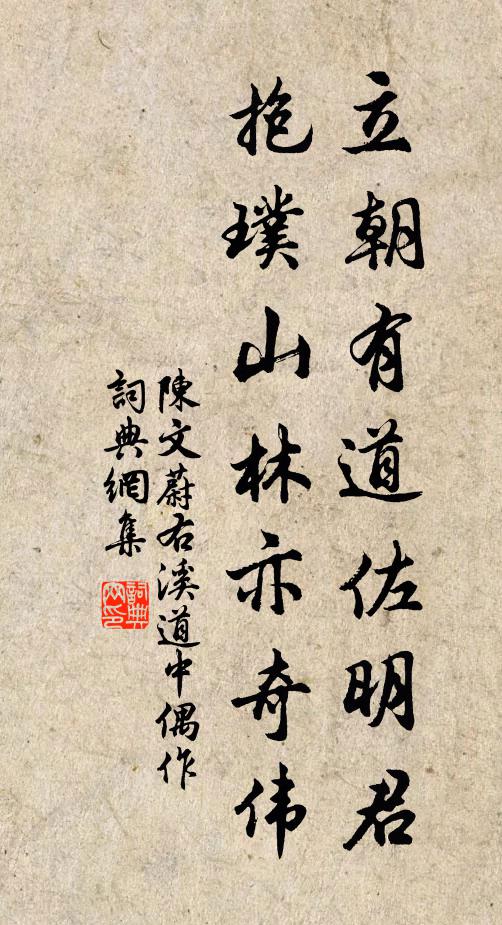 立朝有道佐明君
抱璞山林亦奇伟
陳文蔚右溪道中偶作
詞典網集
詞典
网印